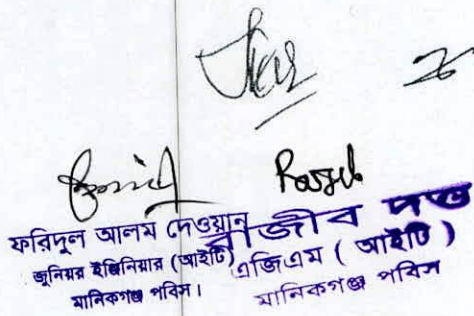 Rajib
ফরিদুল আলম দেওয়ান
জুনিয়র ইঞ্জিনিয়ার (আইটি)
মানিকগঞ্জ পবিস।
রাজীব দত্ত
এজিএম ( আইটি )
মানিকগঞ্জ পবিস